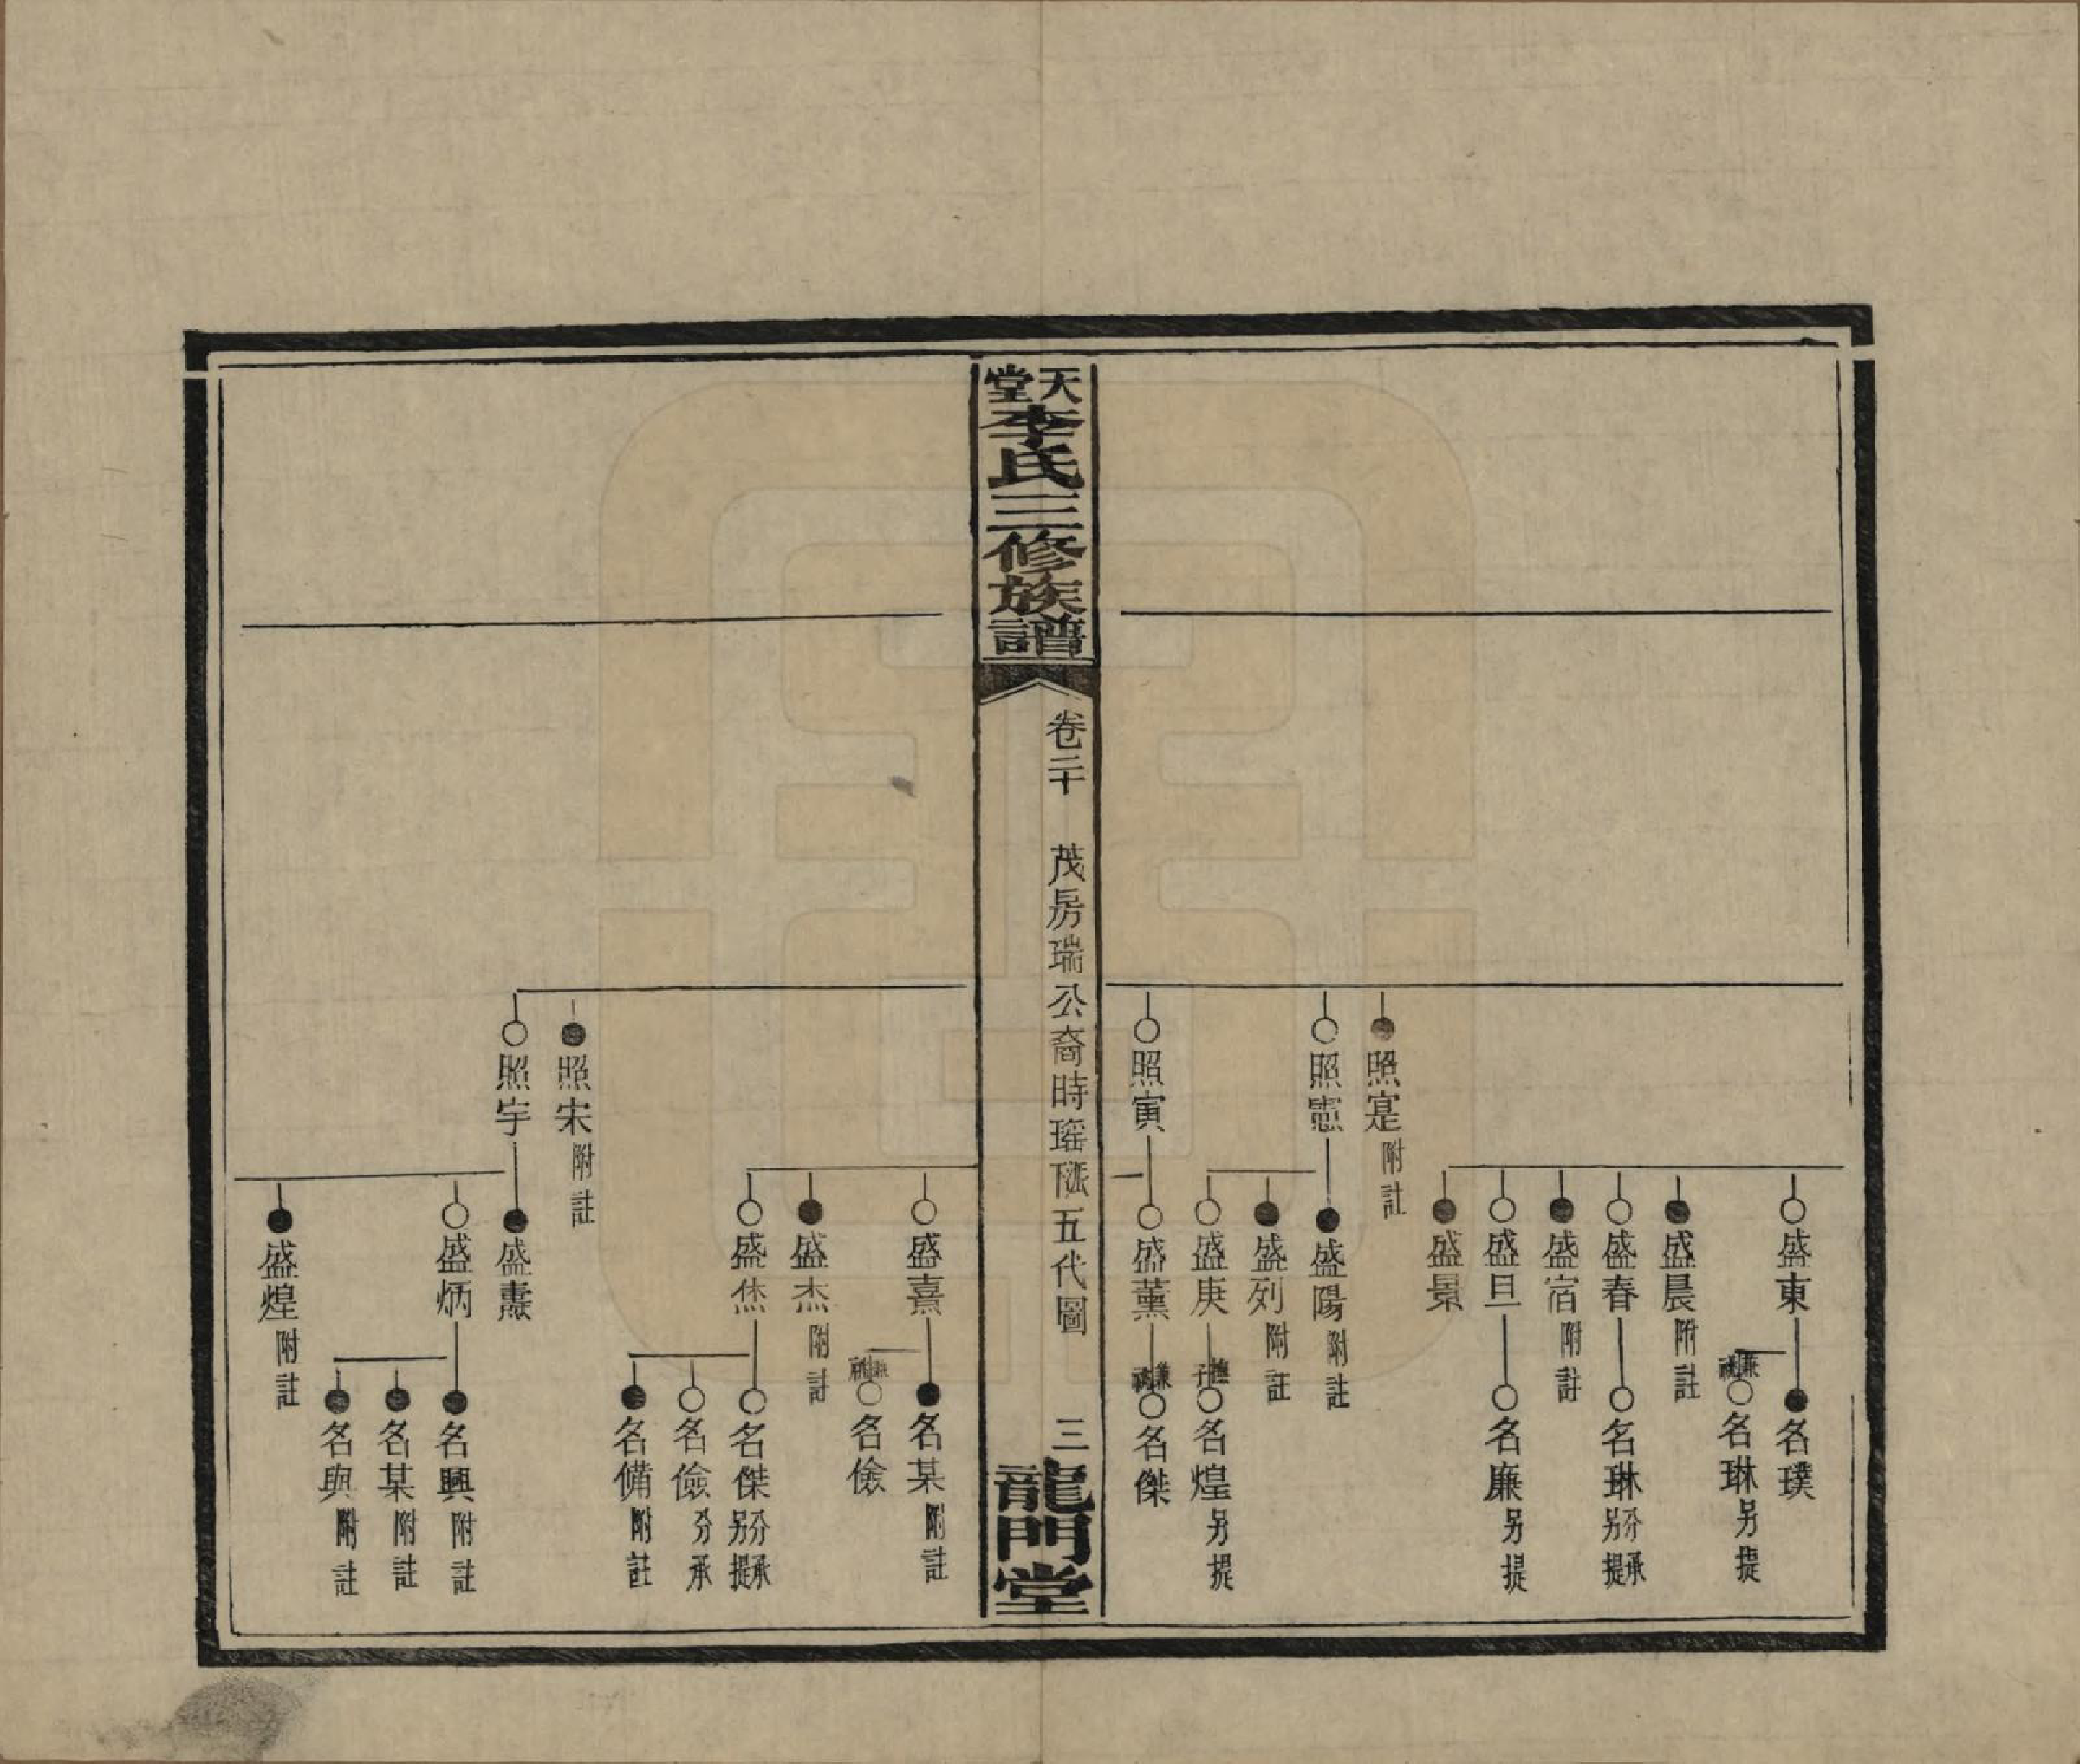 盛東
名璞
兼祧 名琳 另提
盛晨 附註
盛春
名琳 分承 另提
盛宿 附註
盛旦
名廉 另提
盛景
照寔 附註
照憲
盛陽 附註
盛列 附註
盛庚
撫子 名煌 另提
照寅
盛薰
兼祧 名傑
天堂李氏三修族譜
卷二十
茂房瑞公裔時瑶
五代圖
三
龍門堂
盛熹
名某 附註
兼祧 名儉
盛杰 附註
盛烋
名傑 分承 另提
名儉 分承
名備 附註
照宋 附註
照宇
盛燾
盛炳
名興 附註
名某 附註
名與 附註
盛煌 附註